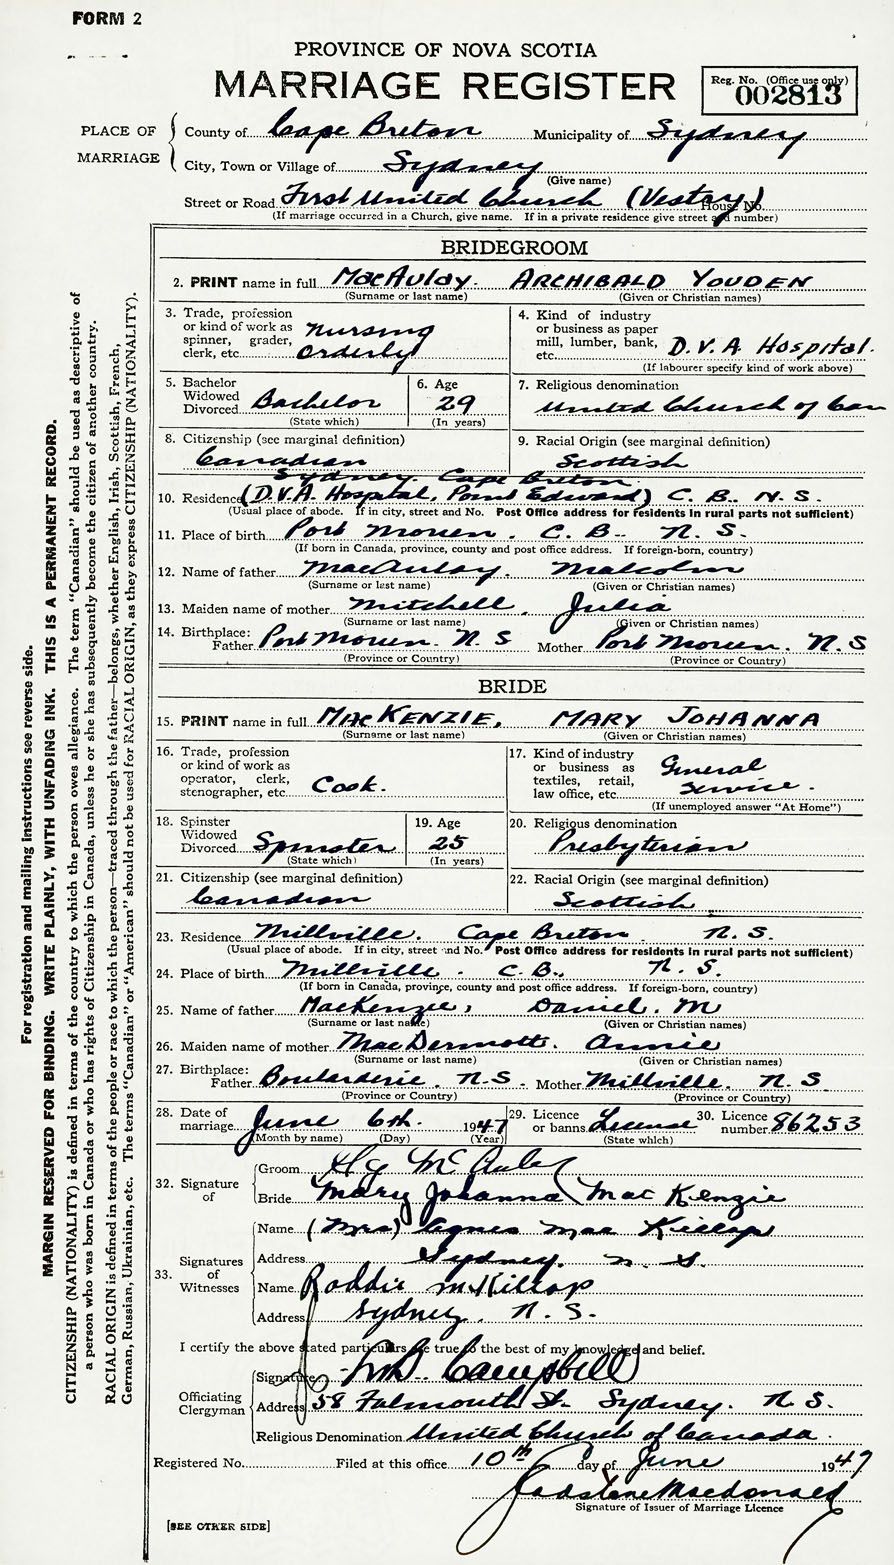 FORM 2
PROVINCE OF NOVA SCOTIA
MARRIAGE REGISTER
Reg. No. (Office use only)
002813
PLACE OF MARRIAGE
County of Cape Breton Municipality of Sydney
City, Town or Village of Sydney
(Give name)
Street or Road First United Church (Vestry) House No.
(If marriage occurred in a Church, give name. If in a private residence give street and number)
BRIDEGROOM
2. PRINT name in full MacAulay. ARCHIBALD YOUDEN
(Surname or last name) (Given or Christian names)
3. Trade, profession or kind of work as spinner, grader, clerk, etc. Nursing Orderly
4. Kind of industry or business as paper mill, lumber, bank, etc. D.V.A. Hospital.
(If labourer specify kind of work above)
5. Bachelor Widowed Divorced Bachelor
(State which)
6. Age 29
(In years)
7. Religious denomination
United Church of Can
8. Citizenship (see marginal definition)
Canadian
9. Racial Origin (see marginal definition)
Scottish
Sydney. Cape Breton.
10. Residence (D.V.A. Hospital, Point Edward) C. B. N. S.
(Usual place of abode. If in city, street and No. Post Office address for residents in rural parts not sufficient)
11. Place of birth Port Morien. C. B. N. S.
(If born in Canada, province, county and post office address. If foreign-born, country)
12. Name of father MacAulay. Malcolm
(Surname or last name) (Given or Christian names)
13. Maiden name of mother Mitchell. Julia
(Surname or last name) (Given or Christian names)
14. Birthplace:
Father Port Morien. N. S Mother Port Morien. N. S
(Province or Country) (Province or Country)
BRIDE
15. PRINT name in full MacKENZIE, MARY JOHANNA
(Surname or last name) (Given or Christian names)
16. Trade, profession or kind of work as operator, clerk, stenographer, etc. Cook.
17. Kind of industry or business as textiles, retail, law office, etc. General Service.
(If unemployed answer "At Home")
18. Spinster Widowed Divorced Spinster
(State which)
19. Age 25
(In years)
20. Religious denomination
Presbyterian
21. Citizenship (see marginal definition)
Canadian
22. Racial Origin (see marginal definition)
Scottish
23. Residence Millville. Cape Breton. N. S.
(Usual place of abode. If in city, street and No. Post Office address for residents in rural parts not sufficient)
24. Place of birth Millville. C. B., N. S.
(If born in Canada, province, county and post office address. If foreign-born, country)
25. Name of father MacKenzie, Daniel. M
(Surname or last name) (Given or Christian names)
26. Maiden name of mother MacDermott. Annie
(Surname or last name) (Given or Christian names)
27. Birthplace:
Father Boularderie. N.S. Mother Millville. N. S.
(Province or Country) (Province or Country)
28. Date of marriage June 6th. 1947
(Month by name) (Day) (Year)
29. Licence or banns License
(State which)
30. Licence number 86253
32. Signature of
Groom
Bride Mary Johanna MacKenzie
33. Signatures of Witnesses
Name (Mrs) Agnes MacKillop
Address Sydney. N. S.
Name Roddie McKillop
Address Sydney, N. S.
I certify the above stated particulars are true to the best of my knowledge and belief.
Officiating Clergyman
Signature Campbell
Address 58 Falmouth St. Sydney. N. S.
Religious Denomination United Church of Canada.
Registered No. Filed at this office 10th day of June 1947
Macdonald
Signature of Issuer of Marriage Licence
[SEE OTHER SIDE]
For registration and mailing instructions see reverse side.
MARGIN RESERVED FOR BINDING. WRITE PLAINLY, WITH UNFADING INK. THIS IS A PERMANENT RECORD.
CITIZENSHIP (NATIONALITY) is defined in terms of the country to which the person owes allegiance. The term "Canadian" should be used as descriptive of
a person who was born in Canada or who has rights of Citizenship in Canada, unless he or she has subsequently become the citizen of another country.
RACIAL ORIGIN is defined in terms of the people or race to which the person—traced through the father—belongs, whether English, Irish, Scottish, French,
German, Russian, Ukrainian, etc. The terms "Canadian" or "American" should not be used for RACIAL ORIGIN, as they express CITIZENSHIP (NATIONALITY).